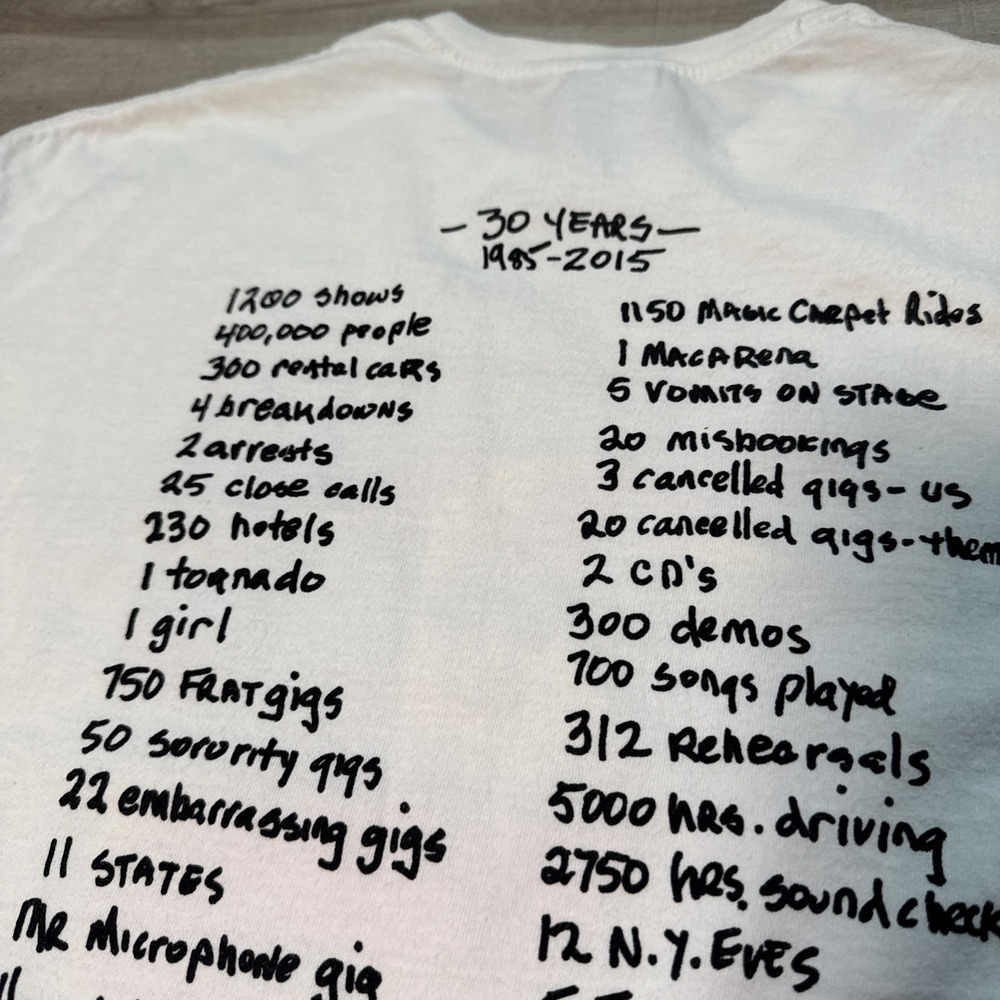 - 30 YEARS -
1985-2015
1200 shows
400,000 people
300 rental cars
4 breakdowns
2 arrests
25 close calls
230 hotels
1 tornado
1 girl
750 FRAT gigs
50 sorority gigs
22 embarrassing gigs
11 STATES
MR Microphone gig
1150 Magic Carpet Rides
1 MACARena
5 VOMITS ON STAGE
20 misbookings
3 cancelled gigs - us
20 cancelled gigs - them
2 CD's
300 demos
700 songs played
312 Rehearsals
5000 hrs. driving
2750 hrs. sound check
12 N.Y. EVES